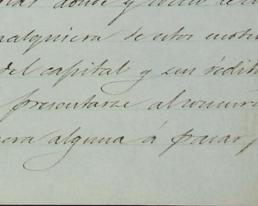 donde y como
ualquiera de estos
del capital y sus rédit
presentarse al concur
era alguna á parar,